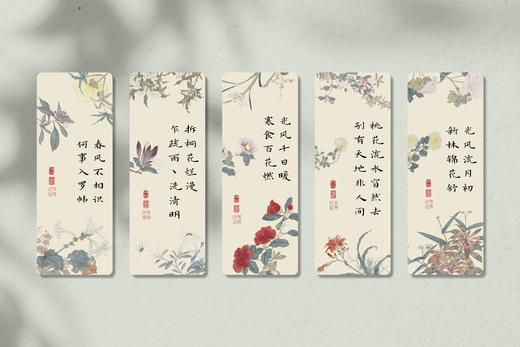 春风不相识
何事入罗帖
拆桐花烂漫
乍疏雨、洗清明
光风千日暖
寒食百花燃
桃花流水窅然去
别有天地非人间
光风流月初
新林锦花舒